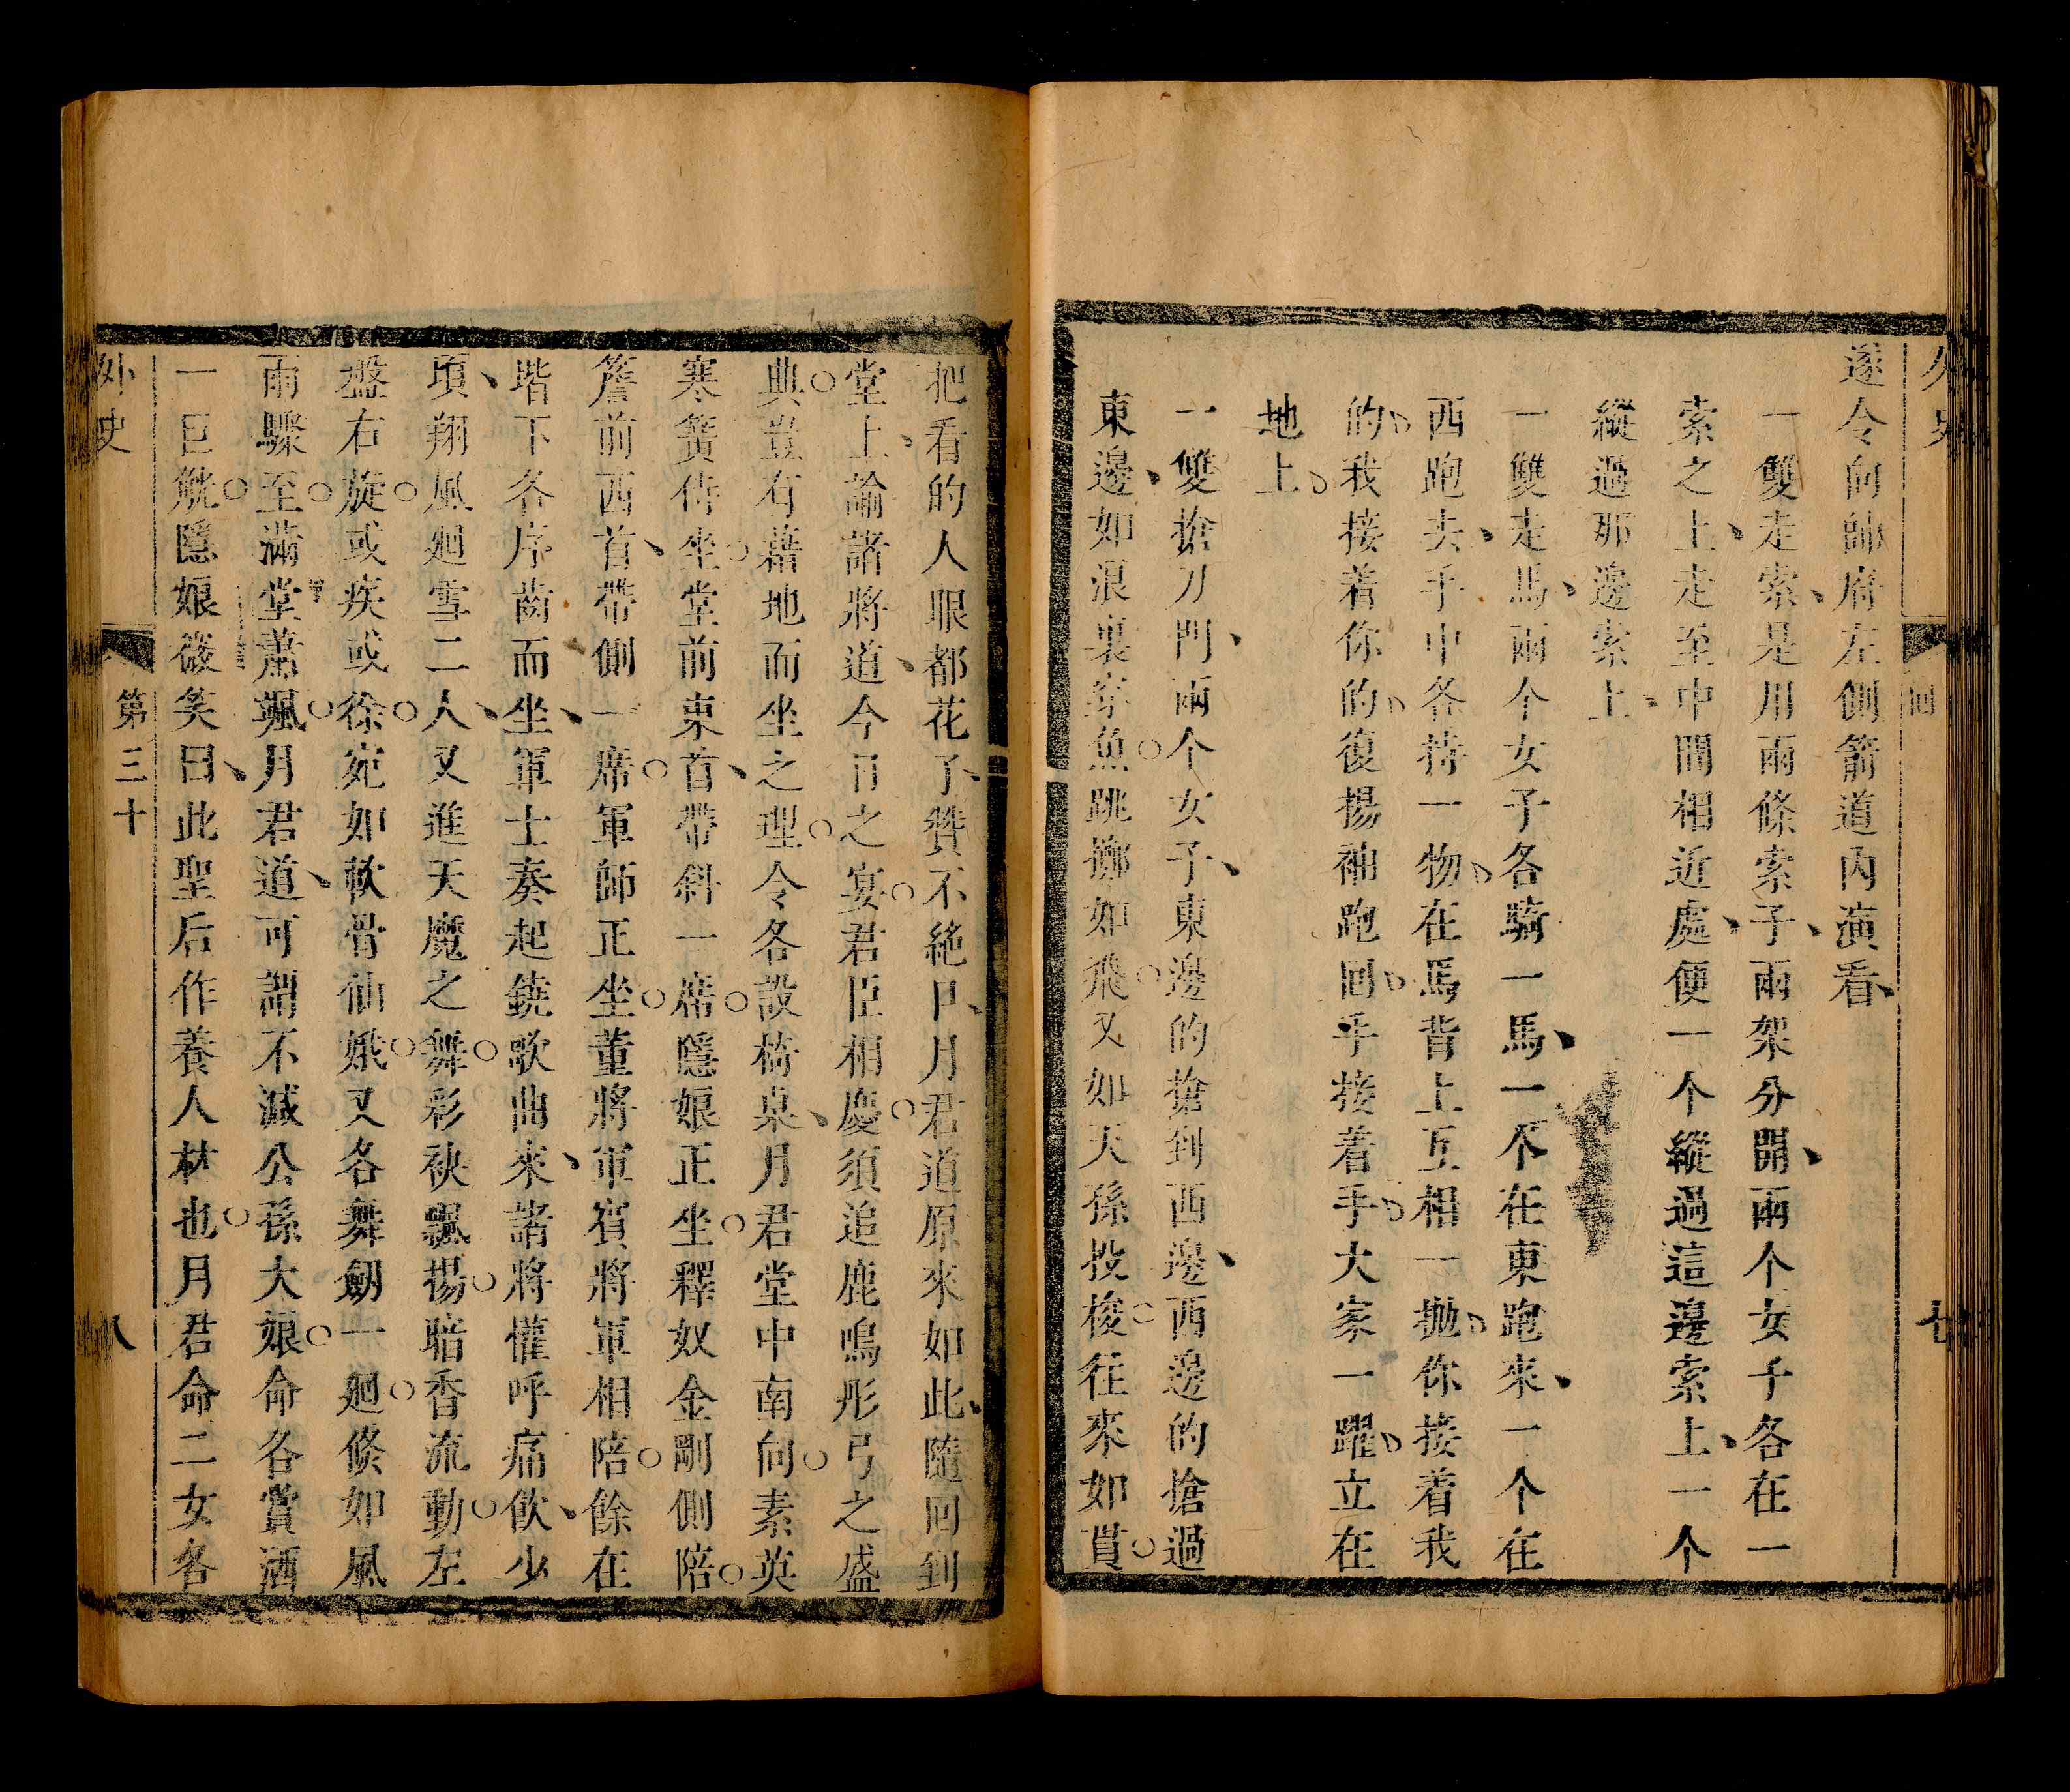 外史
回
七
遂令向帥府左側箭道內演看
一雙走索是用兩條索子兩架分開兩个女子各在一
索之上走至中間相近處便一个縱過這邊索上一个
縱過那邊索上
一雙走馬兩个女子各騎一馬一个在東跑來一个在
西跑去手中各持一物在馬背上互相一拋你接着我
的我接着你的復揚袖跑回乎接着手大家一躍立在
地上
一雙搶刀門兩个女子東邊的搶到西邊西邊的搶過
東邊如浪裏穿魚跳擲如飛又如天孫投梭往來如貫
把看的人眼都花了贊不絕口月君道原來如此隨回到
堂上諭諸將道今日之宴君臣相慶須追鹿鳴彤弓之盛
典豈有藉地而坐之理令各設椅桌月君堂中南向素英
寒簧侍坐堂前東首帶斜一席隱娘正坐釋奴金剛側陪
簷前西首帶側一席軍師正坐董將軍賓將軍相陪餘在
堦下各序齒而坐軍士奏起鐃歌曲來諸將懽呼痛飲少
頃翔風廻雪二人又進天魔之舞彩袂飄揚暗香流動左
盤右旋或疾或徐宛如軟骨仙娥又各舞劒一廻倏如風
雨驟至滿堂蕭颯月君道可謂不減公孫大娘命各賞酒
一巨觥隱娘微笑曰此聖后作養人材也月君命二女各
外史
第三十
八